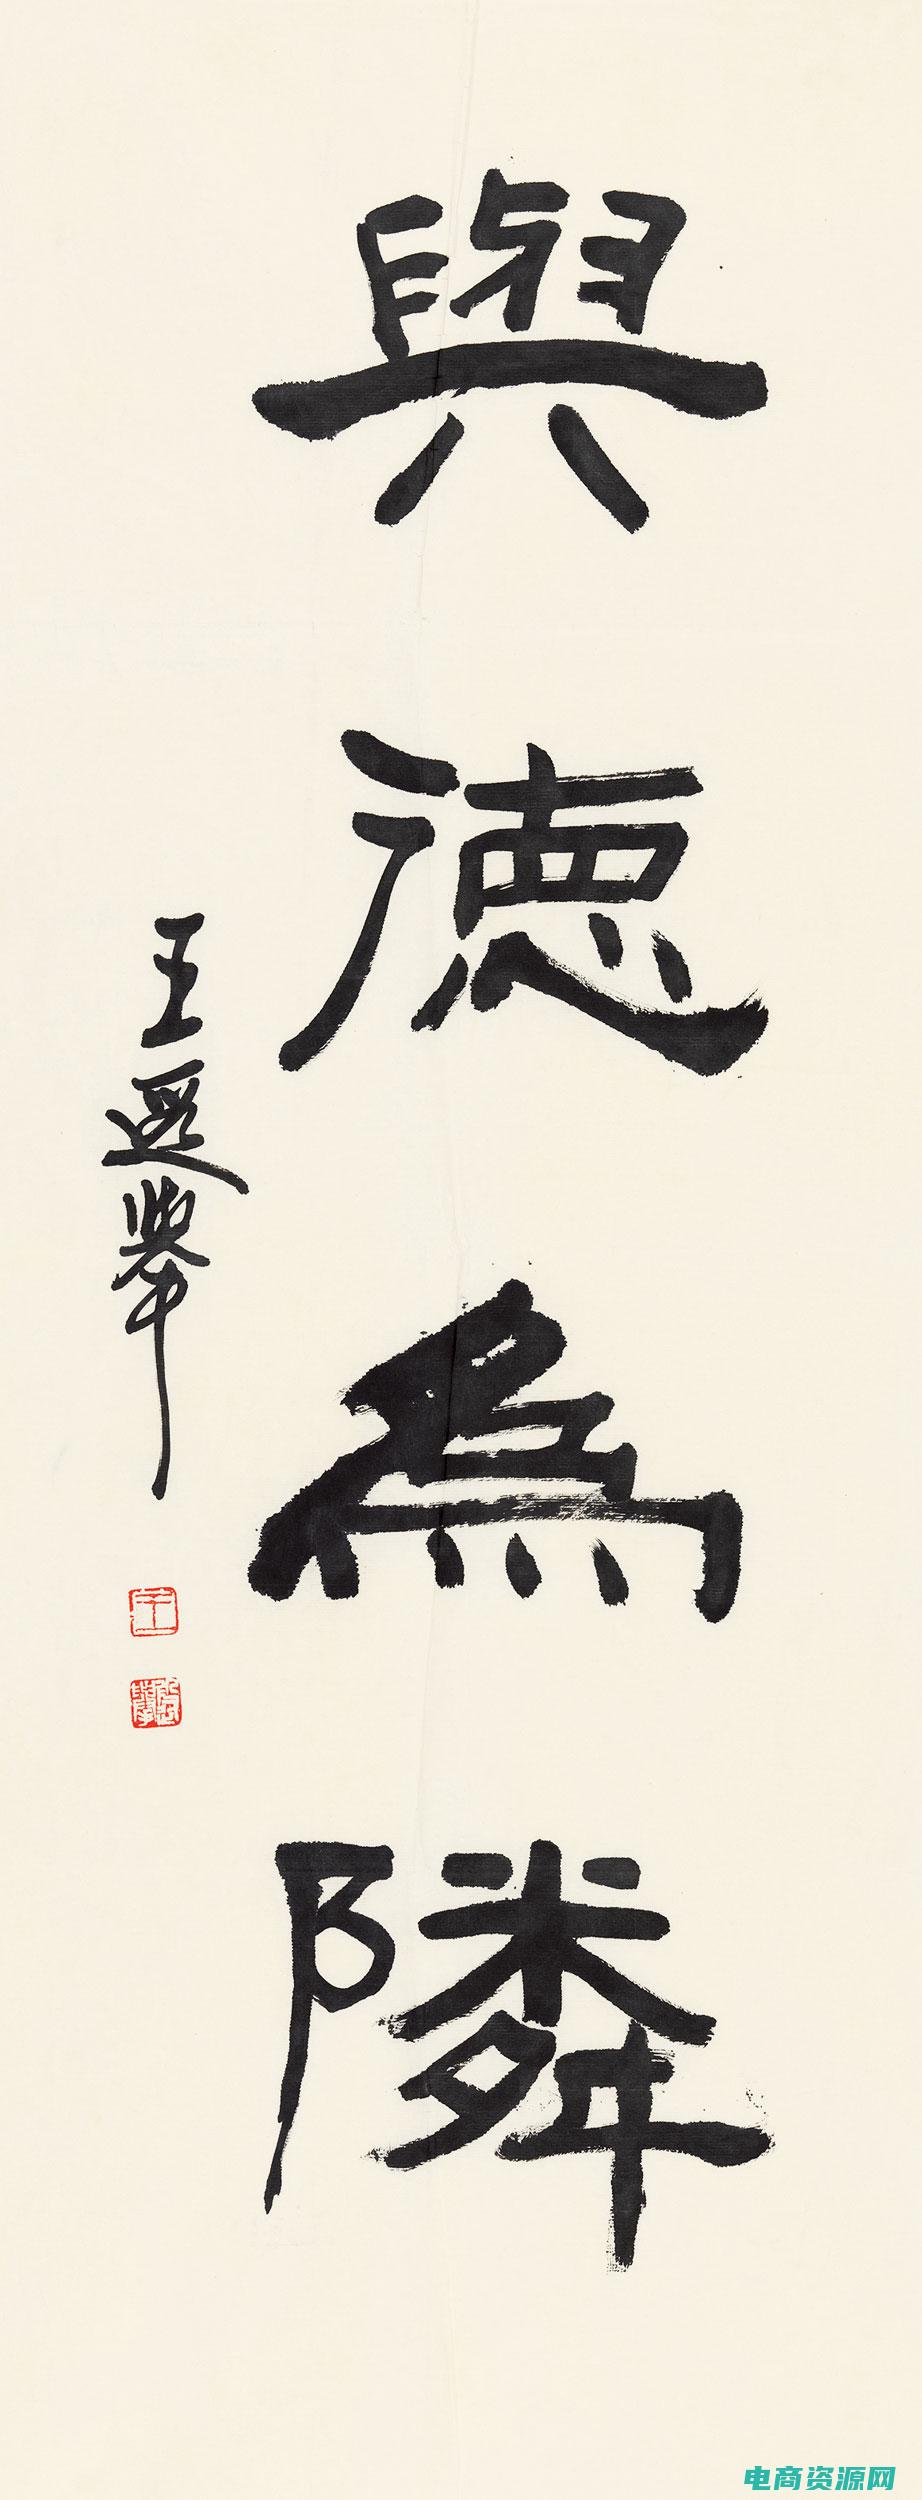 與德為隣
王選舉
王
選舉
电商资源网